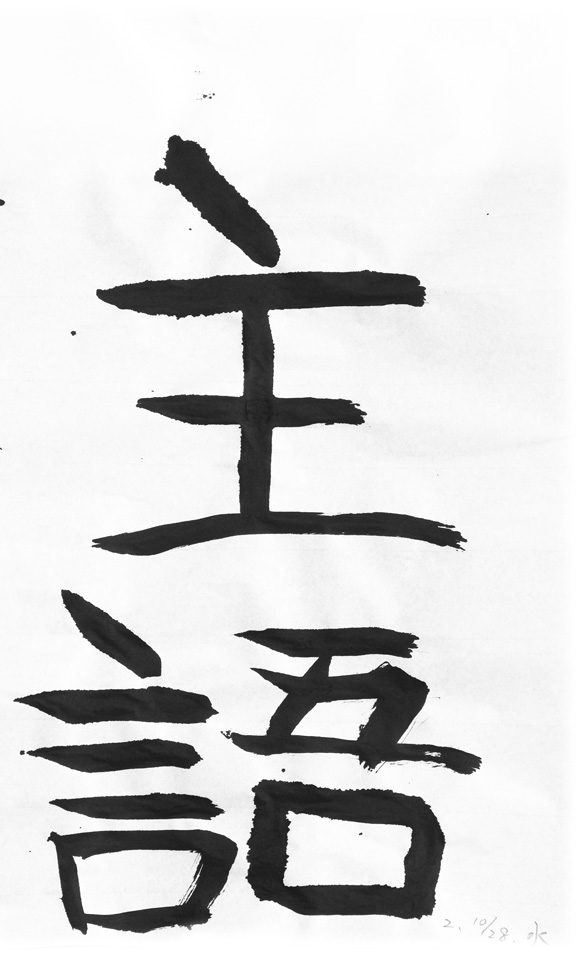 主
語
2. 10/28. 水